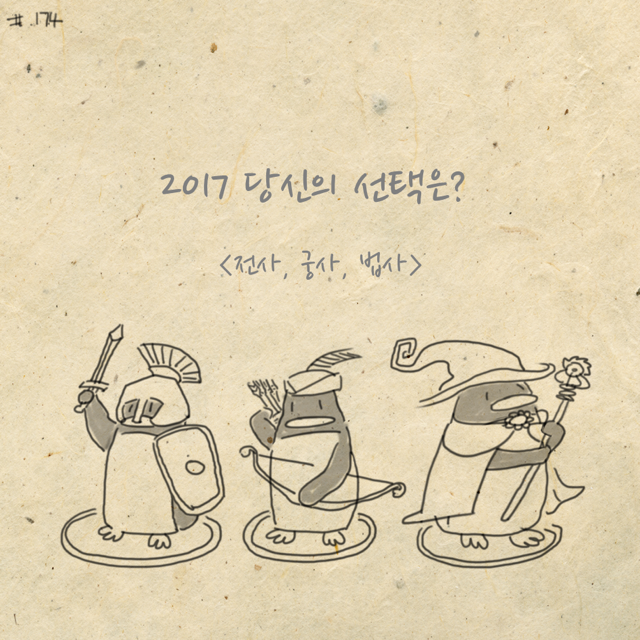 #.174
2017 당신의 선택은?
<전사, 궁사, 법사>